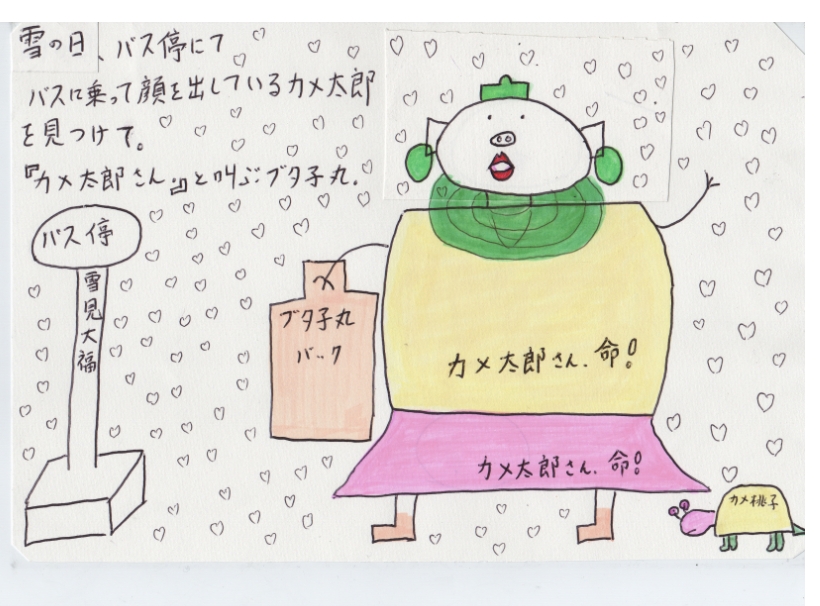 雪の日、バス停にて
バスに乗って顔を出しているカメ太郎
を見つけて。
『カメ太郎さん。』と叫ぶブタ子丸.
バス停
雪見大福
ブタ子丸
バック
カメ太郎さん.命!
カメ太郎さん.命!
カメ桃子